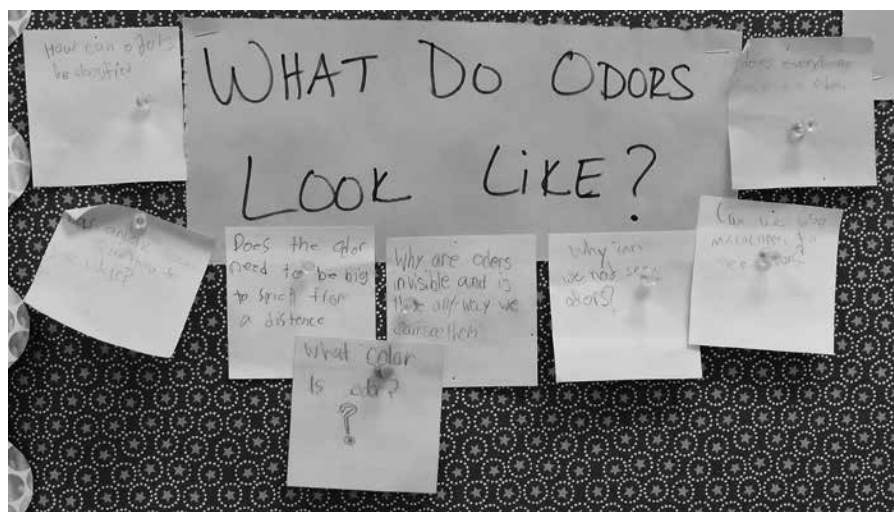 How can odors
be classified
WHAT DO ODORS
LOOK LIKE?
does everything
Does the odor
need to be big
to smell from
a distence
Why are oders
invisible and is
there any way we
can see them
Why can
we not see
odors?
Can we use
to
see
What color
Is odor?
?